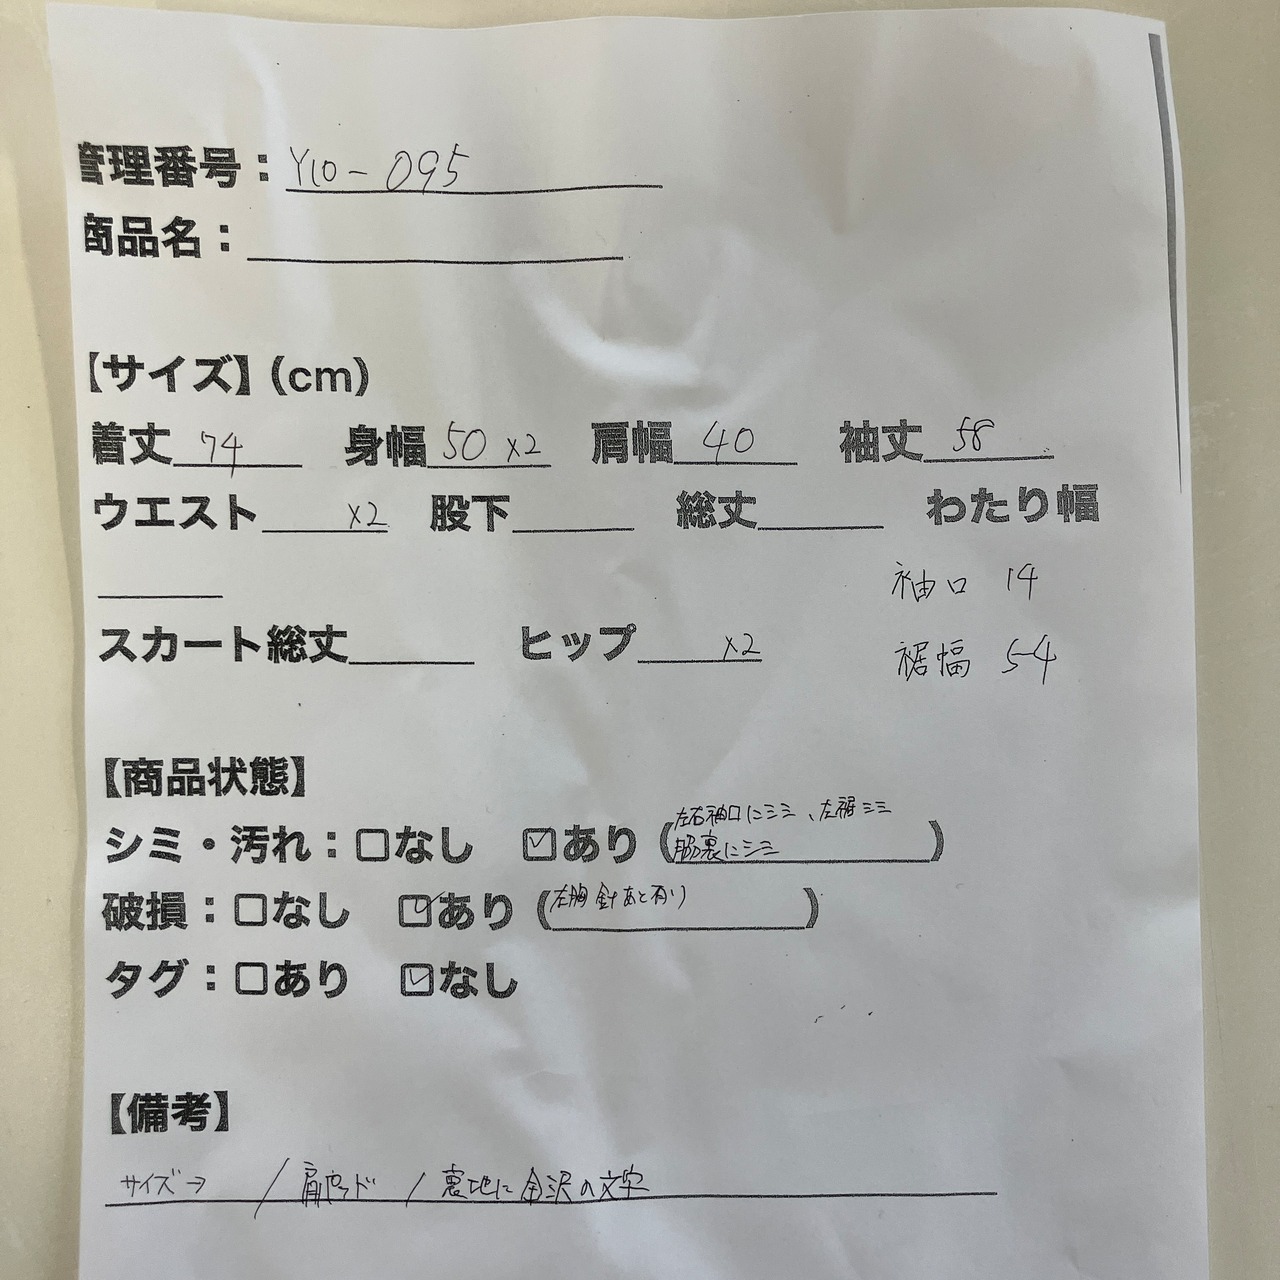 管理番号：Y10-095
商品名：
【サイズ】(cm)
着丈 74 身幅 50 x2 肩幅 40 袖丈 58
ウエスト x2 股下 総丈 わたり幅
袖口 14
スカート総丈 ヒップ x2
裾幅 54
【商品状態】
シミ・汚れ：□なし ☑あり (左右袖口にシミ、左裾シミ
脇裏にシミ)
破損：□なし ☑あり (左胸 針あと有り)
タグ：□あり ☑なし
【備考】
サイズ→ / 肩パッド / 裏地に金沢の文字